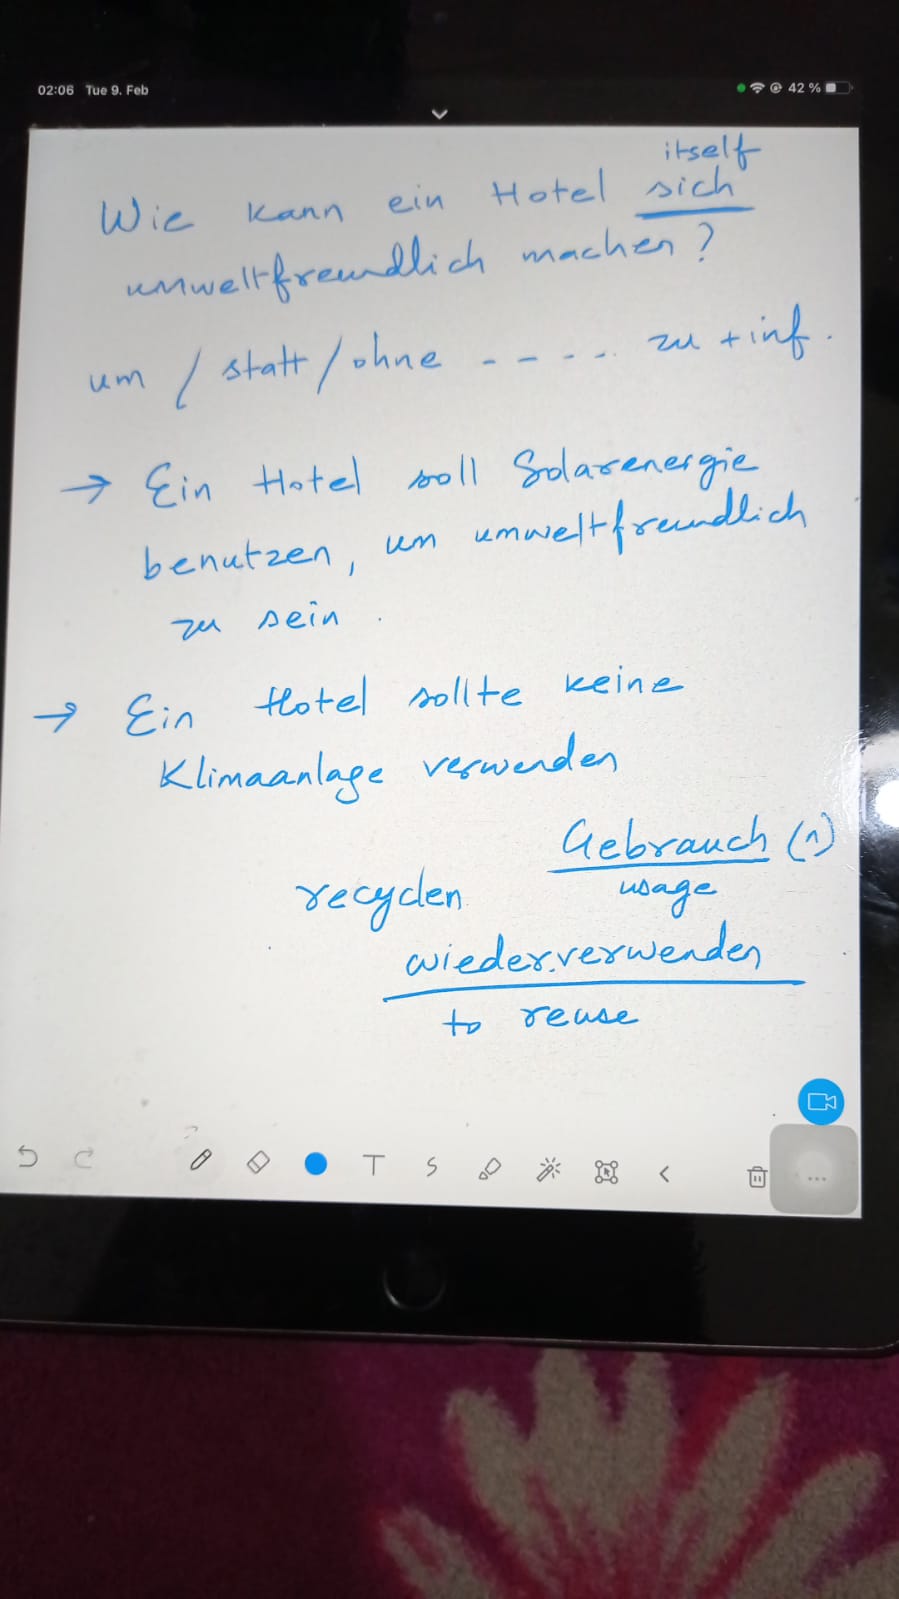 02:06 Tue 9. Feb 42 %
itself
Wie kann ein Hotel sich
umweltfreundlich machen?
um / statt / ohne - - - - . zu + inf.
→ Ein Hotel soll Solarenergie
benutzen, um umweltfreundlich
zu sein.
→ Ein Hotel sollte keine
Klimaanlage verwenden
Gebrauch (n)
recyclen usage
wieder.verwenden
to reuse
T S